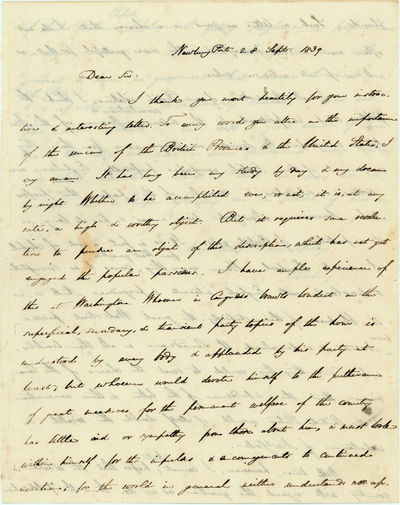 Newbury Port 28 Sept. 1839
Dear Sir.
I thank you most heartily for your instruc-
tive & interesting letter. To every word you utter on the importance
of the union of the British Provinces & the United States, I
say amen. It has long been my study by day & my dream
by night. Whether to be accomplished ever, or not, it is, at any
rate, a high & worthy object. But it requires some
tion to pursue an object of this description, which has not yet
engaged the popular passions. I have ample experience of
this at Washington. Whoever in Congress loudest on the
superficial, & transient party topics of the hour is
understood by every body & applauded by his party at
least; but whosoever would devote himself to the furtherance
of great measures for the permanent welfare of the country
has little aid or sympathy from those about him, & must look
within himself for the impulse & encouragements to continued
exertion; for the world in general neither understands nor ap-